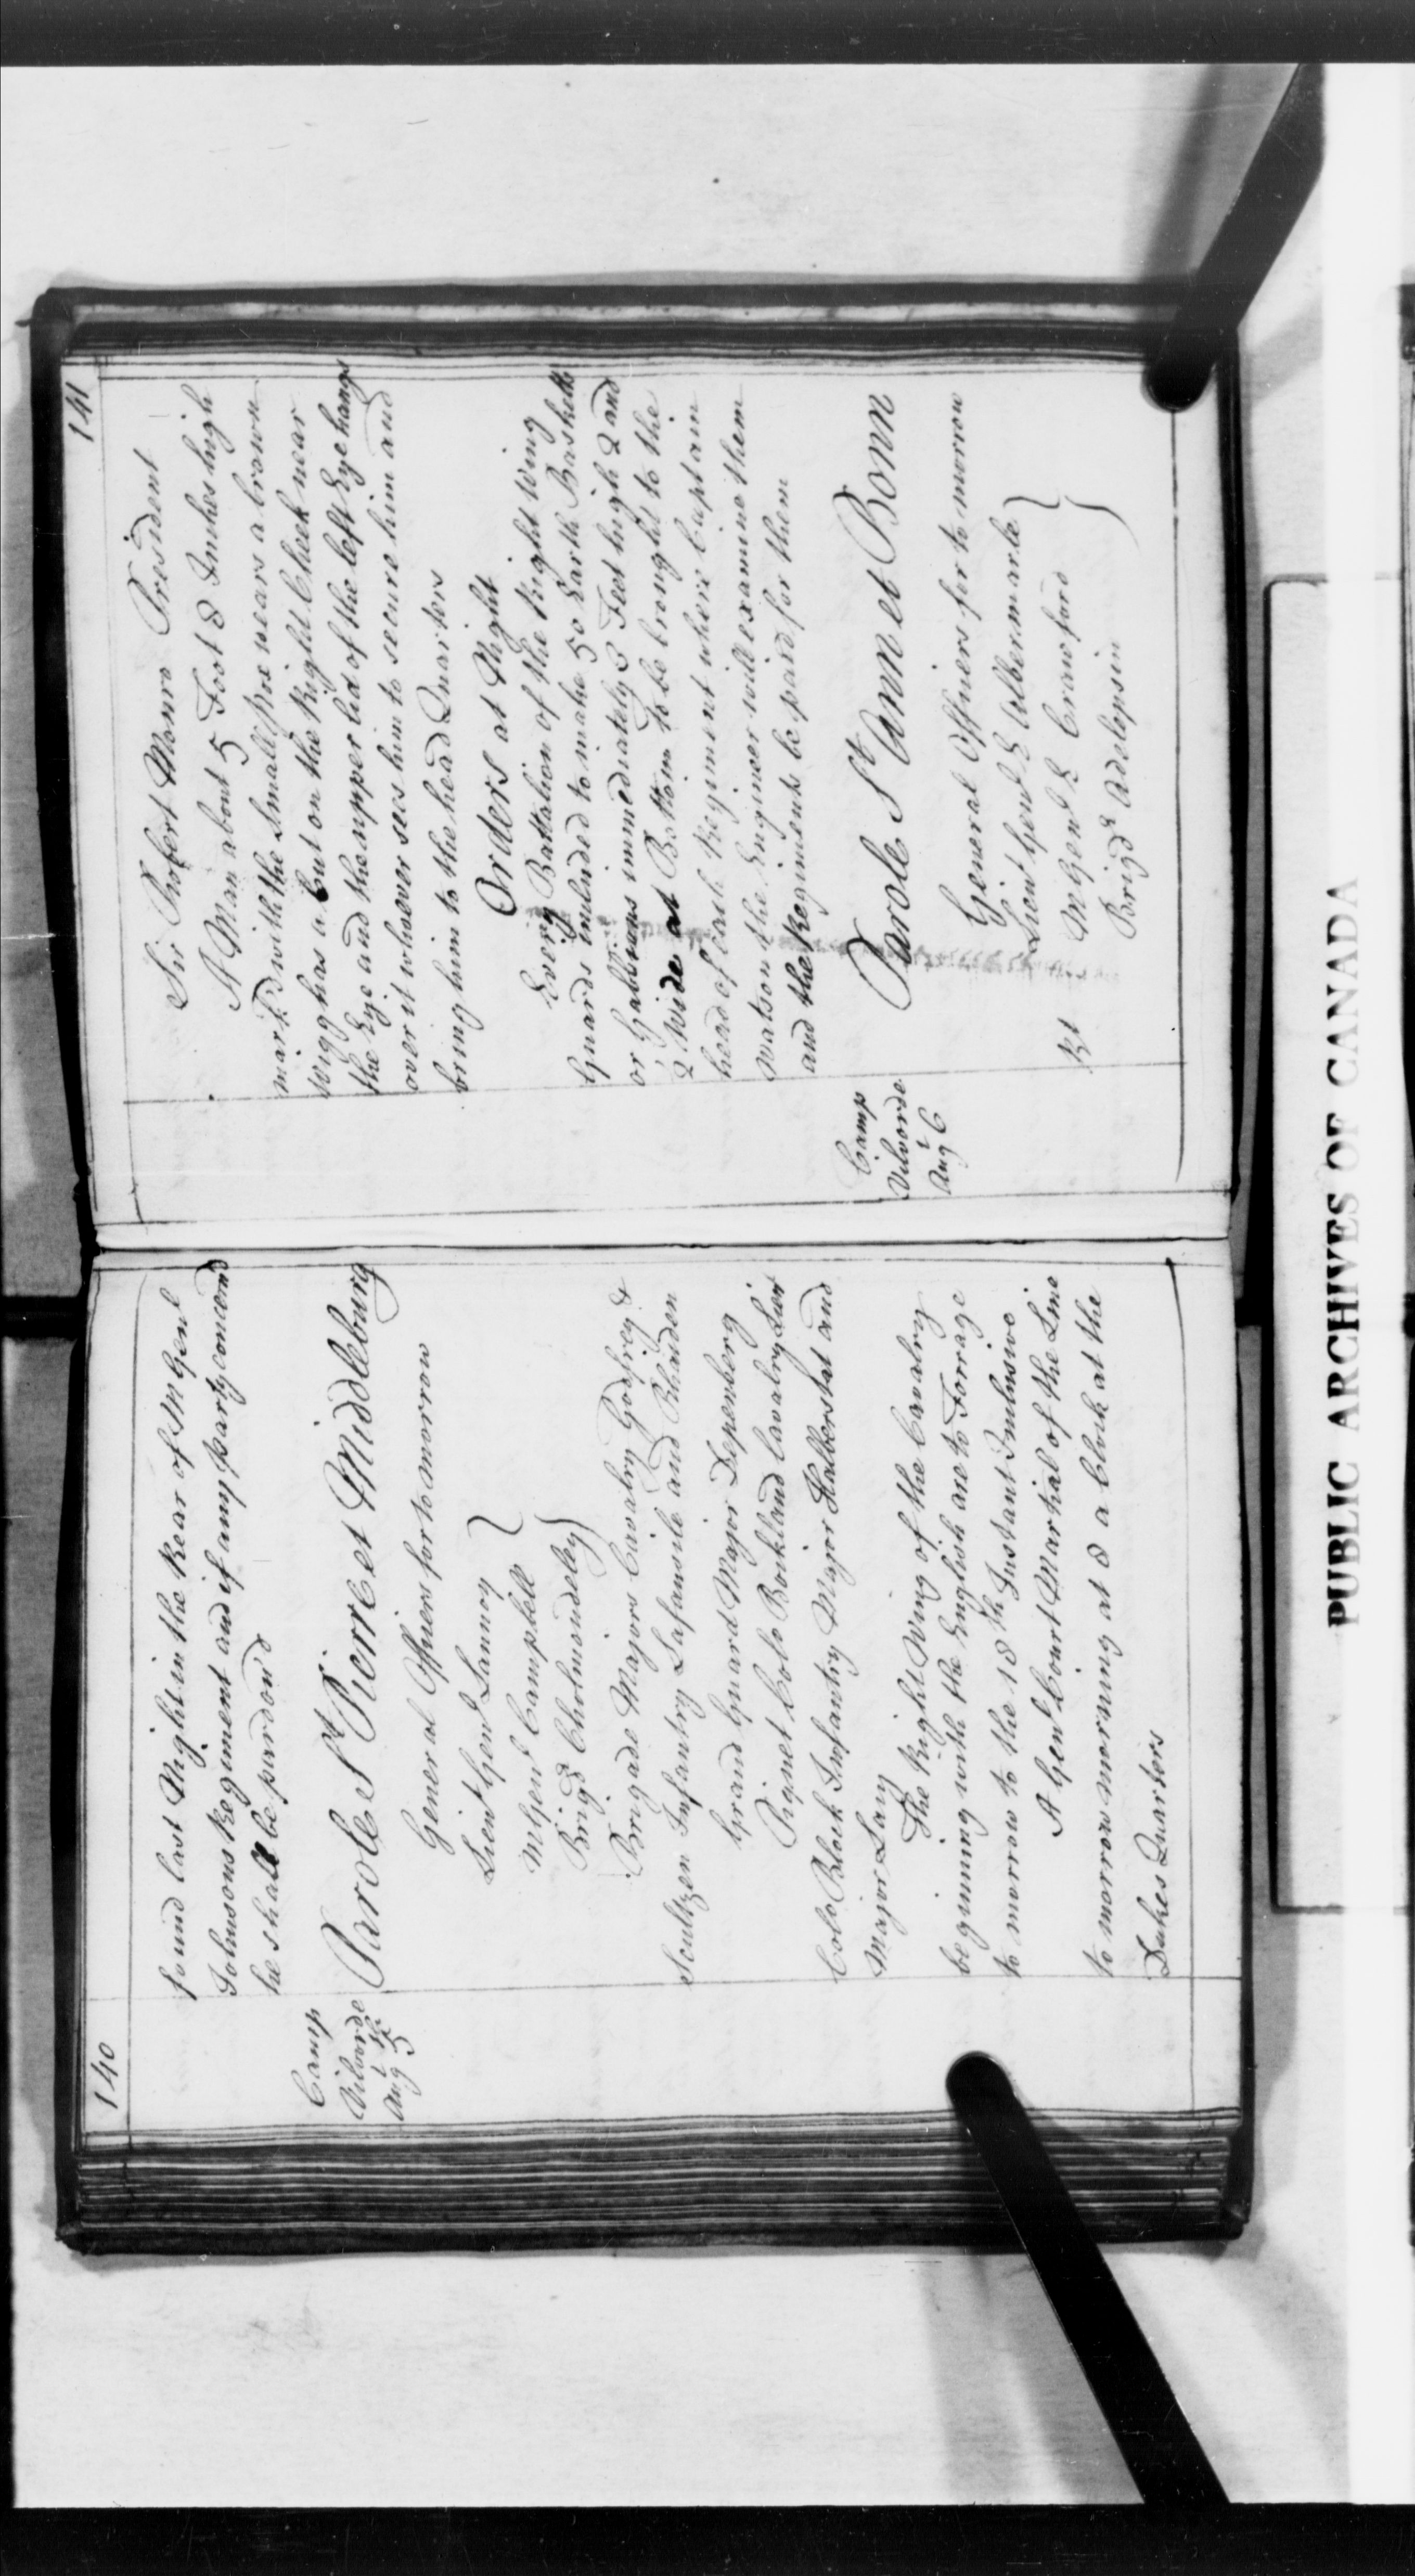 140
found last Night in the Rear of M Genl
Johnsons Regiment and if any party concernd
he shall be pardon'd
Camp
Vilvorde
Augt 5th
Parole St Pierre et Middleburg
General Officers for to morrow
Lieut Genl Lannoy
M Genl Campbell
Brigd Cholmondeley
Brigade Majors Cavalry Godfrey &
Scultzen Infantry Lafausile and Rhaden
Grand Guard Major Depenberg
Piquet Colo Bockland Cavalry Lieut
Colo Block Infantry Major Halberstat and
Major Lary
The Right Wing of the Cavalry
beginning with the English are to Forrage
to morrow to the 18th Instant Inclusive
A Genl Court Martial of the Line
to morrow morning at 8 a Clock at the
Dukes Quarters
141
Sir Robert Monro President
A Man about 5 Foot 8 Inches high
mark'd with the Small Pox wears a brown
Wigg has a Cut on the Right Cheek near
the Eye and the upper lid of the left Eye hangs
over it whoever sees him to secure him and
bring him to the head Quarters
Orders at Night
Every Battalion of the Right Wing
Guards included to make 50 Earth Basketts
or Gabions immediately 3 Feet high 2 and
2 Wide at Bottom to be brought to the
head of each Regiment where Captain
Watson the Engineer will examine them
and the Regiments be paid for them
Camp
Vilvorde
Augt 6
Parole St Anne et Bonn
General Officers for to morrow
Lieut Genl E Albermarle
M Genl E Crawford
Brigdr Adelepsin
PUBLIC ARCHIVES OF CANADA